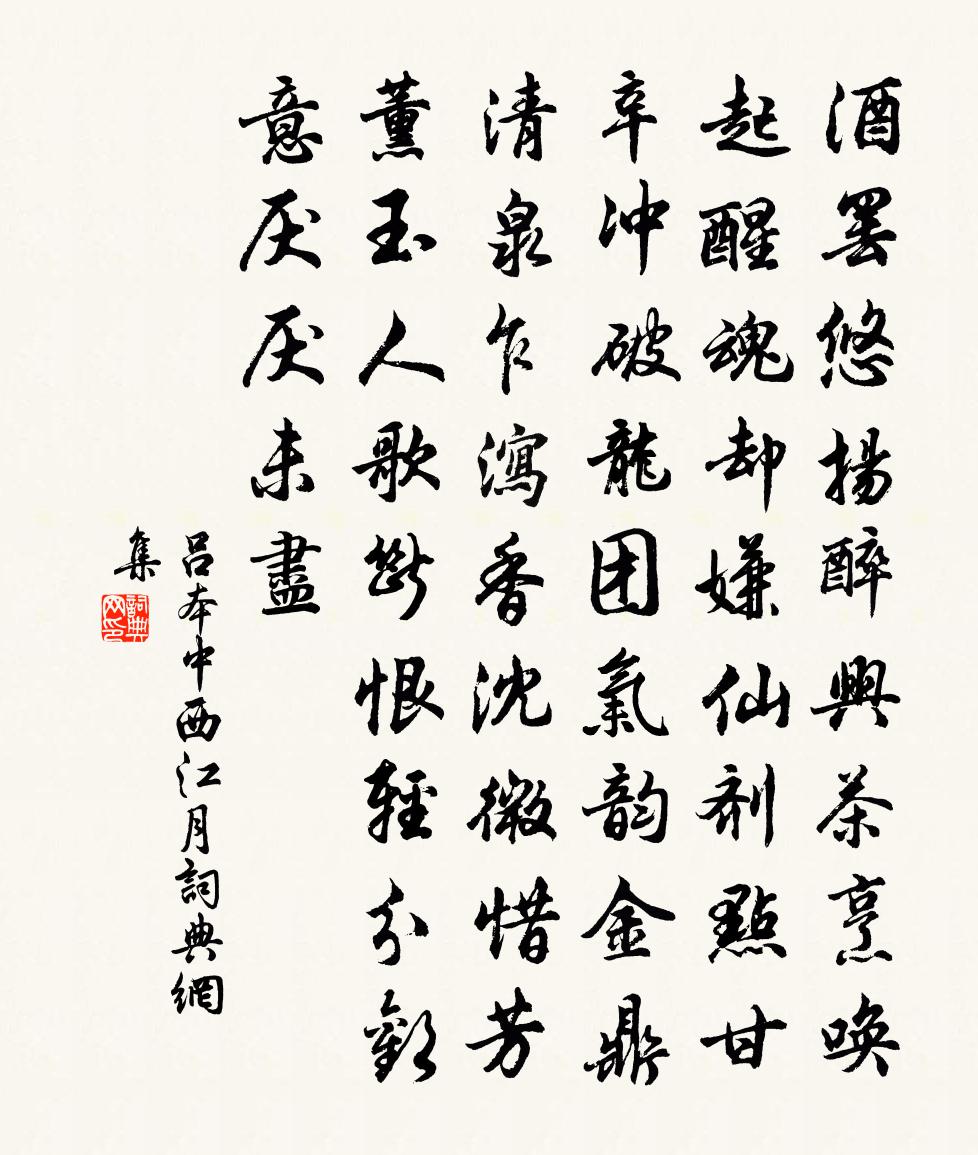 酒罢悠揚醉興茶烹喚
起醒魂却嫌仙剂點甘
辛冲破龍团氣韵金鼎
清泉乍瀉香沈微惜芳
薰玉人歌斷恨輕分歡
意厌厌未盡
吕本中西江月詞典網
集
詞典
网印